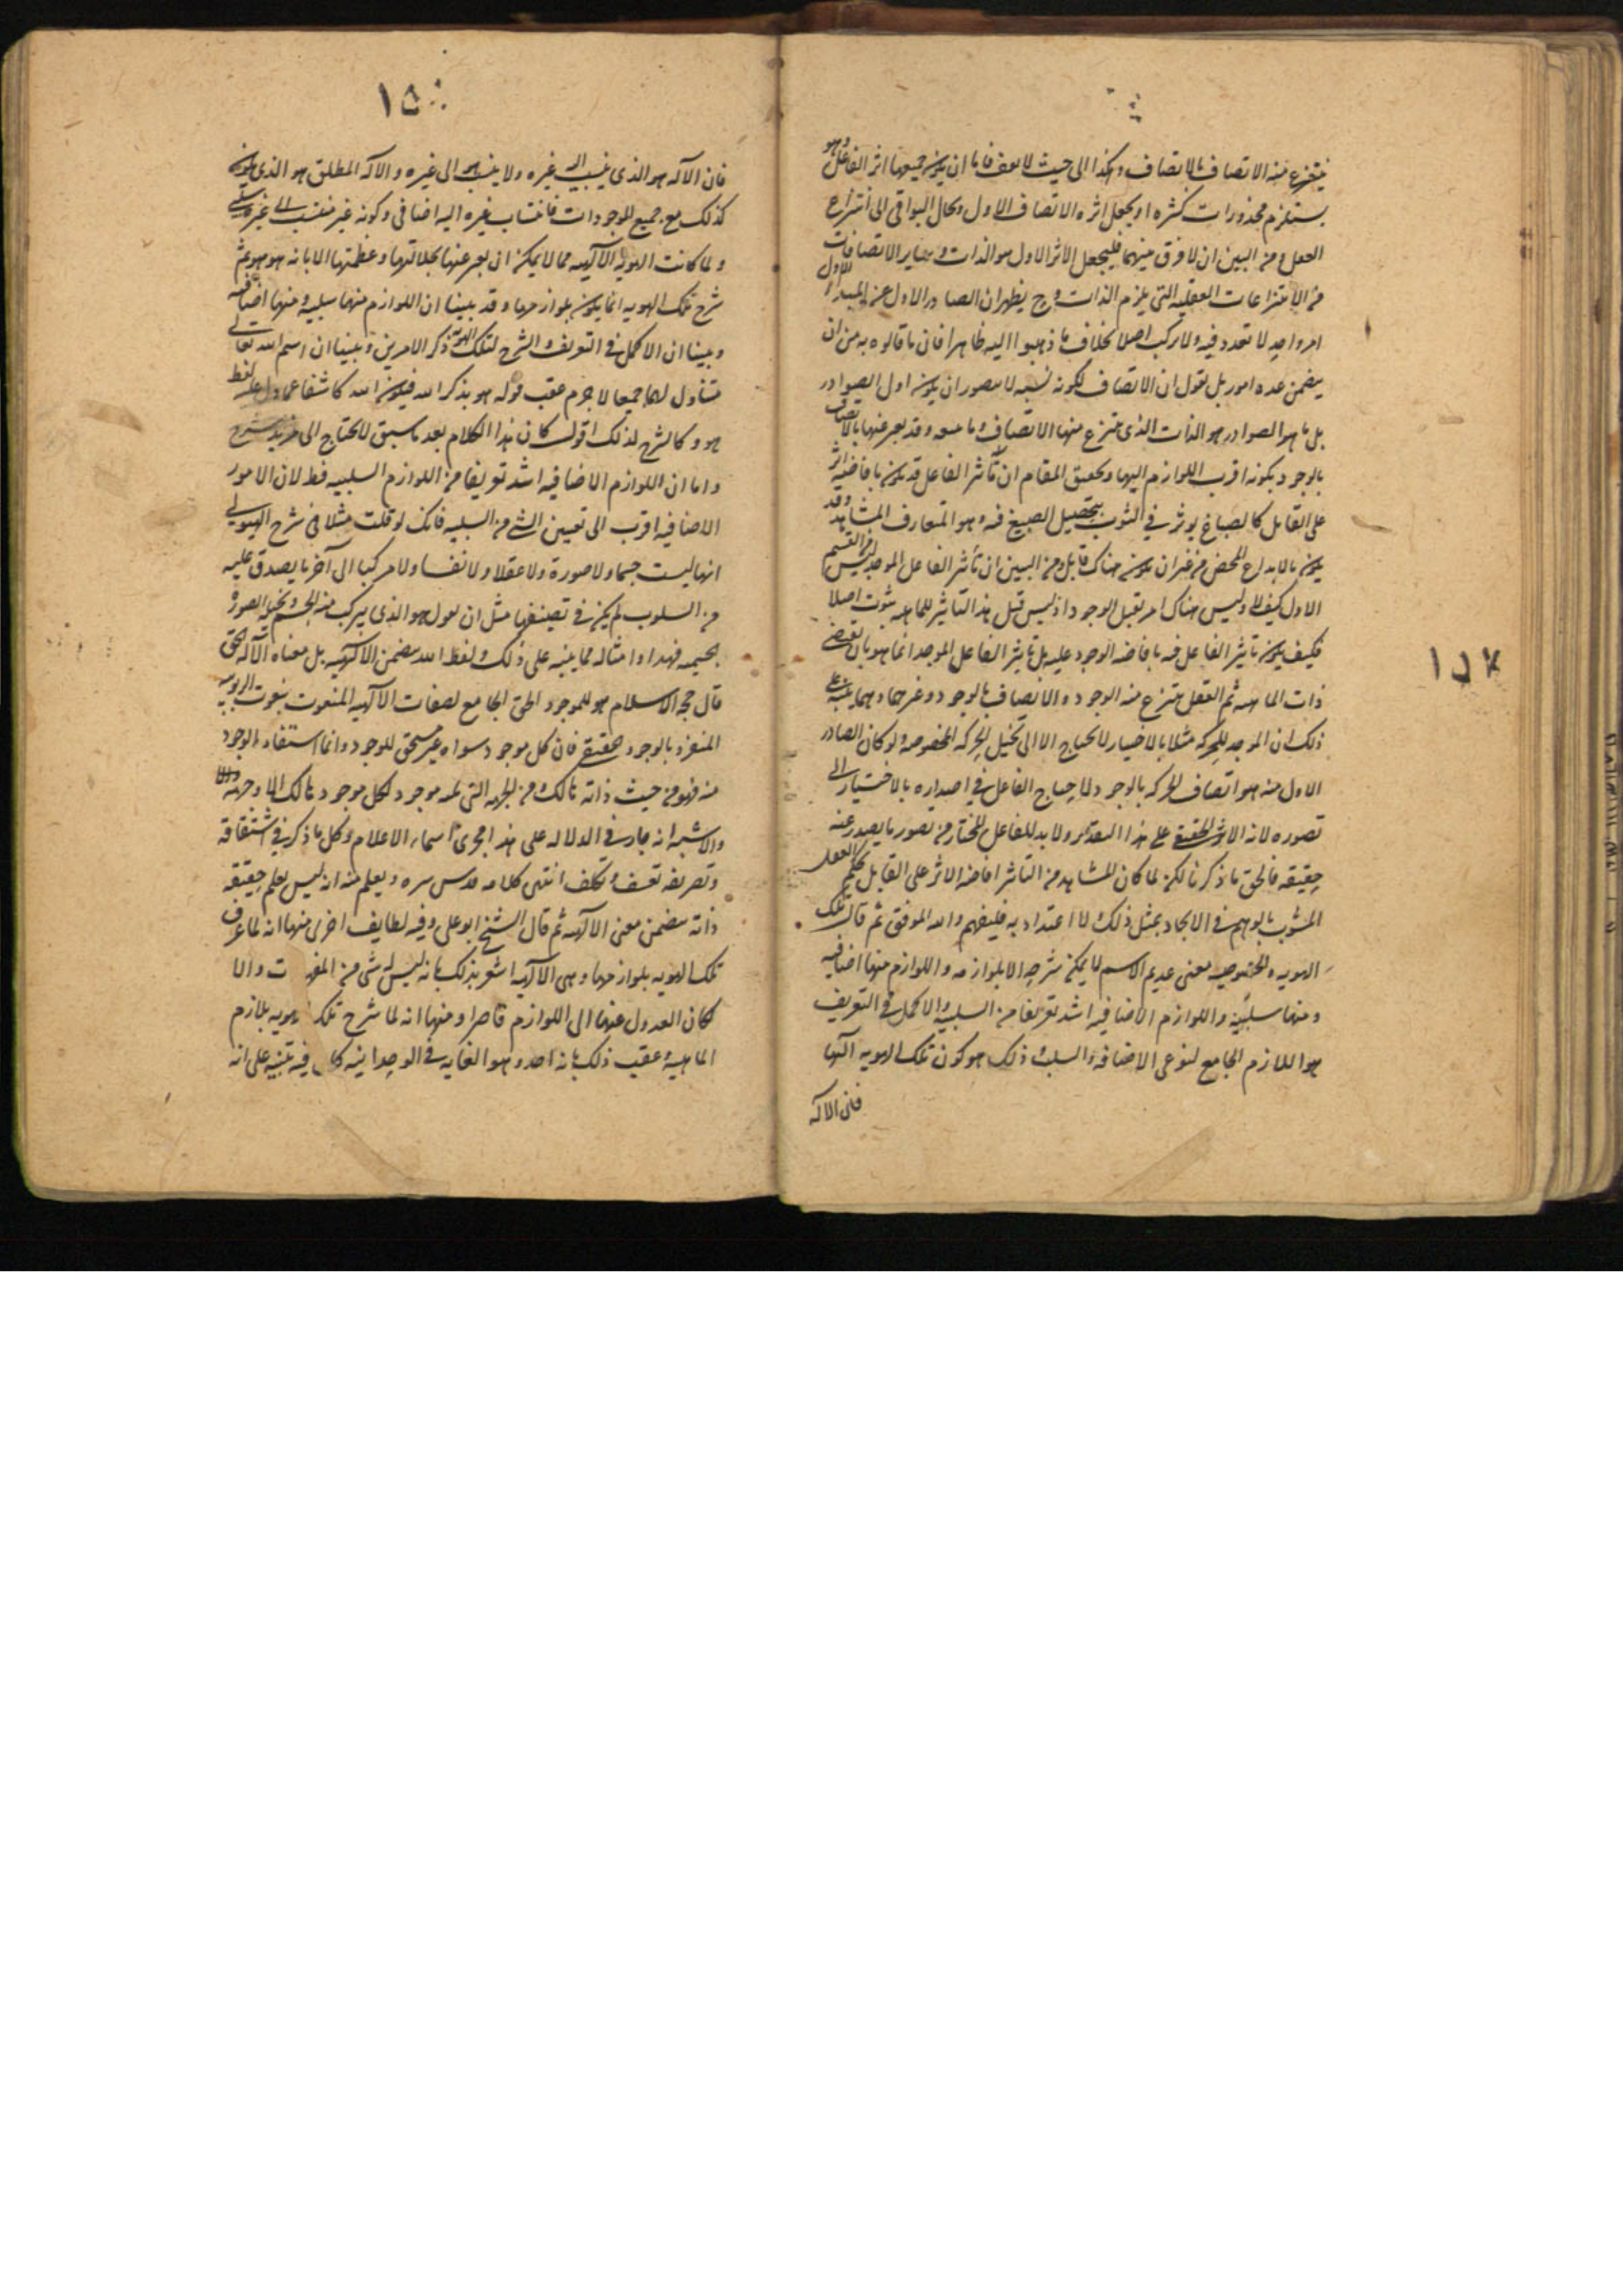 ينتزع منه الاتصاف بالاتصاف وهكذا الى حيث لا يقف فاما ان يكون جميعها اثر الفاعل وهو
يستلزم محذورات كثيره او يجعل اثره الاتصاف الاول ويحال البواقى الى انتزاع
العقل ومن البين ان لا فرق بينهما فليجعل الاثر الاول هو الذات وساير الاتصافات
من الانتزاعات العقليه التى يلزم الذات وح يظهر ان الصادر الاول عن المبداء الاول
امر واحد لا تعدد فيه ولا تركب اصلا بخلاف ما ذهبوا اليه ظاهرا فان ما قالوه به من ان
يتضمن عده امور بل نقول ان الاتصاف لكونه نسبه لا يتصور ان يكون اول الصوادر
بل ما هو الصوادر هو الذات الذى ينتزع منها الاتصاف وقد يعبر عنها بالاتصاف
بالوجود بكونه اقرب اللوازم اليها وتحقيق المقام ان تأثير الفاعل قد يكون بافاضه اثر
على القابل كالصباغ يوثر فى الثوب بتحصيل الصبغ فيه وهو المتعارف المشاهد وقد
يكون بالابداع المحض من غير ان يكون هناك قابل ومن البين ان تأثير الفاعل الموجد ليس من القسم
الاول كيف لا وليس هناك امر يقبل الوجود اذ ليس قبل هذا التأثير للماهيه ثبوت اصلا
فكيف يكون تاثير الفاعل فيه بافاضه الوجود عليه بل تاثير الفاعل الموجد انما هو بان
ذات الماهيه ثم العقل ينتزع منه الوجود والاتصاف بالوجود وغيرهما ومما ينبه على
ذلك ان الموجد للحركه مثلا بالاختيار لا يحتاج الا الى تخيل الحركه المخصوصه ولو كان الصادر
الاول منه هو اتصاف الحركه بالوجود لاحتاج الفاعل فى اصداره بالاختيار الى
تصوره لانه الاثر الحقيقى على هذا التقدير ولا بد للفاعل المختار من تصور ما يصدر عنه
حقيقه فالحق ما ذكرنا لكن لما كان المشاهد من التاثير افاضه الاثر على القابل حكم العقل
المشوب بالوهم فى الايجاد بمثل ذلك لا اعتداد به فليفهم والله الموفق ثم قال تلك
الهويه المخصوصه معنى عديم الاسم لا يمكن شرحه الا بلوازمه واللوازم منها اضافيه
ومنها سلبيه واللوازم الاضافيه اشد تعريفا من السلبيه والاكمل فى التعريف
هو اللازم الجامع لنوعى الاضافه والسلب ذلك هو كون تلك الهويه الٓها
فان الالٓه
١٥٠
فان الالٓه هو الذى ينسب اليه غيره ولا ينسب هو الى غيره والالٓه المطلق هو الذى يكون
كذلك مع جميع الموجودات فانتساب غيره اليه اضافى وكونه غير منتسب الى غيره سلبى
ولما كانت الهويه الالٓهيه مما لا يمكن ان يعبر عنها لجلالتها وعظمتها الا بانه هو هو ثم
شرح تلك الهويه انما يكون بلوازمها وقد بينا ان اللوازم منها سلبيه ومنها اضافيه
وبينا ان الاكمل فى التعريف والشرح لتلك الهويه ذكر الامرين وبينا ان اسم الله تعالى
متناول لهما جميعا لا جرم عقب قوله هو بذكر الله فيكون الله كاشفا عما دل عليه لفظ
هو وكالشرح لذلك اقول كان هذا الكلام بعد ما سبق لا يحتاج الى مزيد شرح
واما ان اللوازم الاضافيه اشد تعريفا من اللوازم السلبيه فقط لان الامور
الاضافيه اقرب الى تعيين الشئ من السلبيه فانك لو قلت مثلا فى شرح الهيولى
انها ليست جسما ولا صورة ولا عقلا ولا نفسا ولا مركبا الى آخر ما يصدق عليه
من السلوب لم يكن فى تصنيفها مثل ان تقول هو الذى يتركب منه الجسم
فهذا وامثاله مما ينبه على ذلك ولفظ الله يتضمن الالٓهيه بل معناه الالٓه الحق
قال حجه الاسلام هو للموجود الحق الجامع لصفات الالٓهيه المنعوت بنعوت الربوبيه
المنفرد بالوجود الحقيقى فان كل موجود سواه غير مستحق للوجود وانما استفاد الوجود
منه فهو من حيث ذاته هالك ومن الجهه التى تليه موجود فكل موجود هالك الا وجهه
والاشبه انه جار فى الدلاله على هذا مجرى اسماء الاعلام وكل ما ذكر فى اشتقاقه
وتصريفه تعسف وتكلف انتهى كلامه قدس سره ويعلم منه انه ليس يعلم حقيقه
ذاته يتضمن معنى الالٓهيه ثم قال الشيخ ابو على وفيه لطايف اخرى منها انه لما عرف
تلك الهويه بلوازمها وهى الالٓهيه اشعر بذلك بانه ليس له شى من المقومات والا
لكان العدول عنها الى اللوازم قاصرا ومنها انه لما شرح تلك الهويه بلازم
الماهيه عقب ذلك بانه احد وهو الغايه فى الوحدانيه كان فيه تنبيه على انه